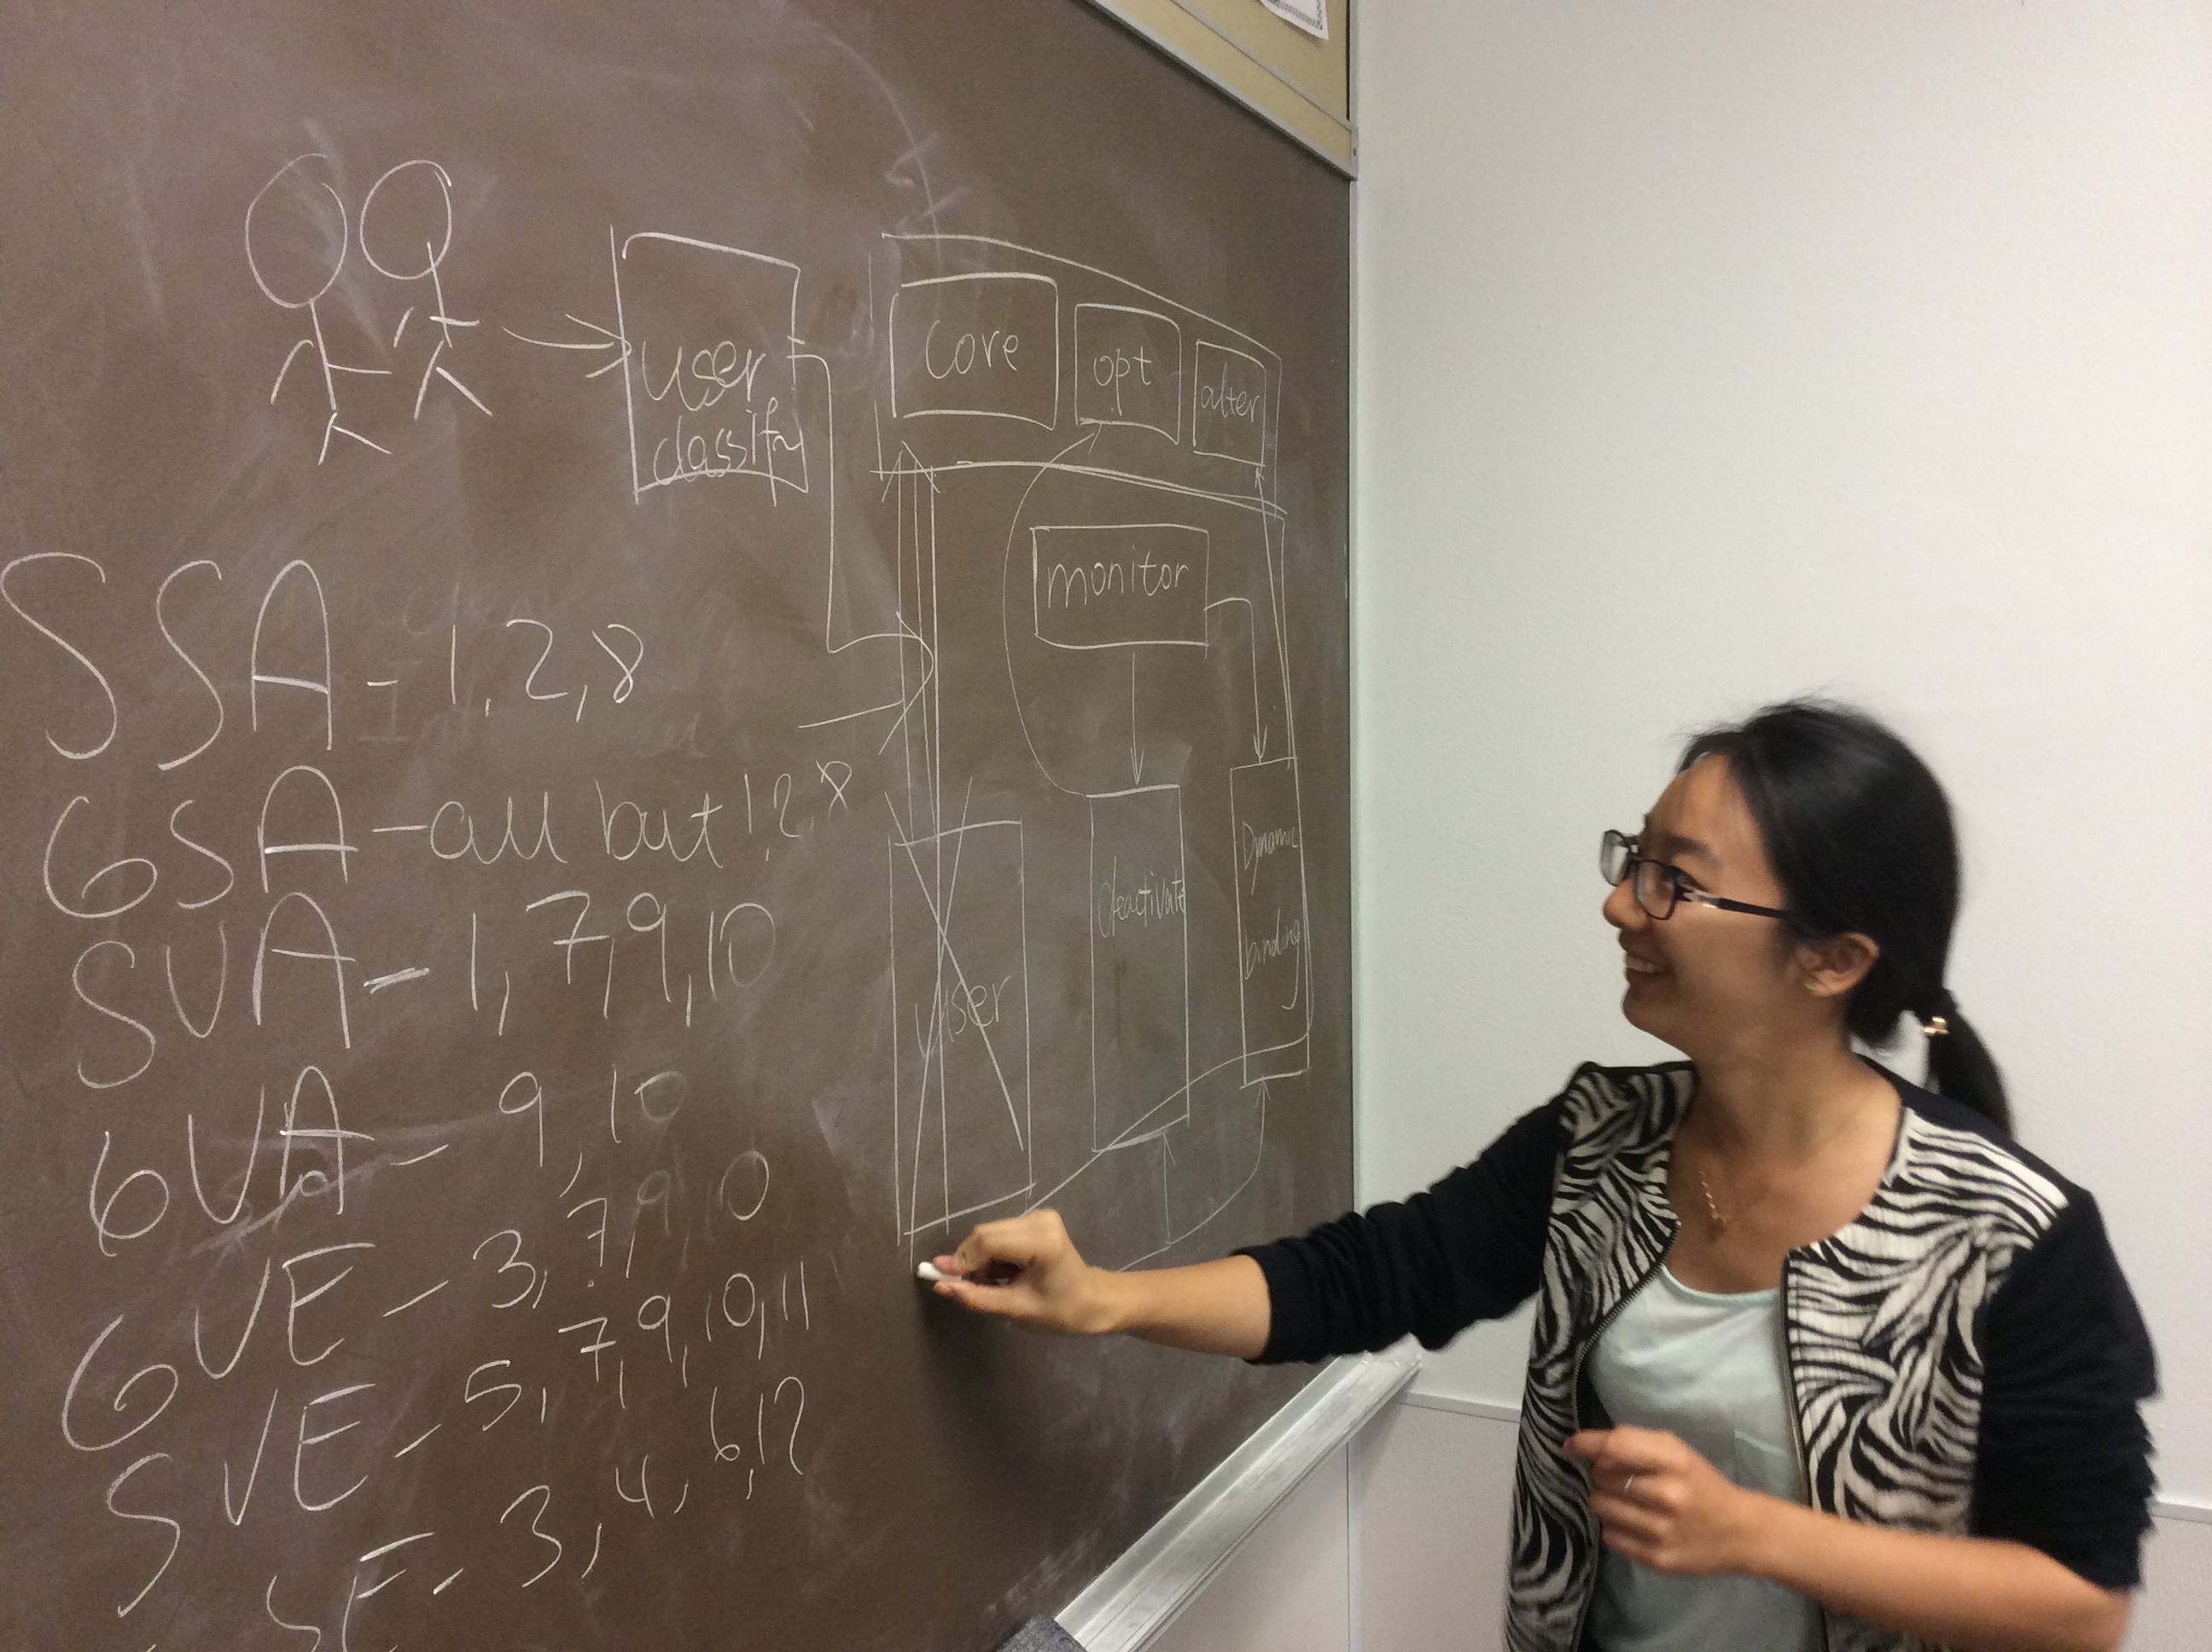 user
classif
core
opt
alter
monitor
deactivate
Dynamic
binding
user
SSA - 1,2,8
GSA - all but 1,2,8
SVA - 1,7,9,10
GVA - 9,10
GVE - 3,7,9,10
SVE - 5,7,9,10,11
SE - 3,4,6,12